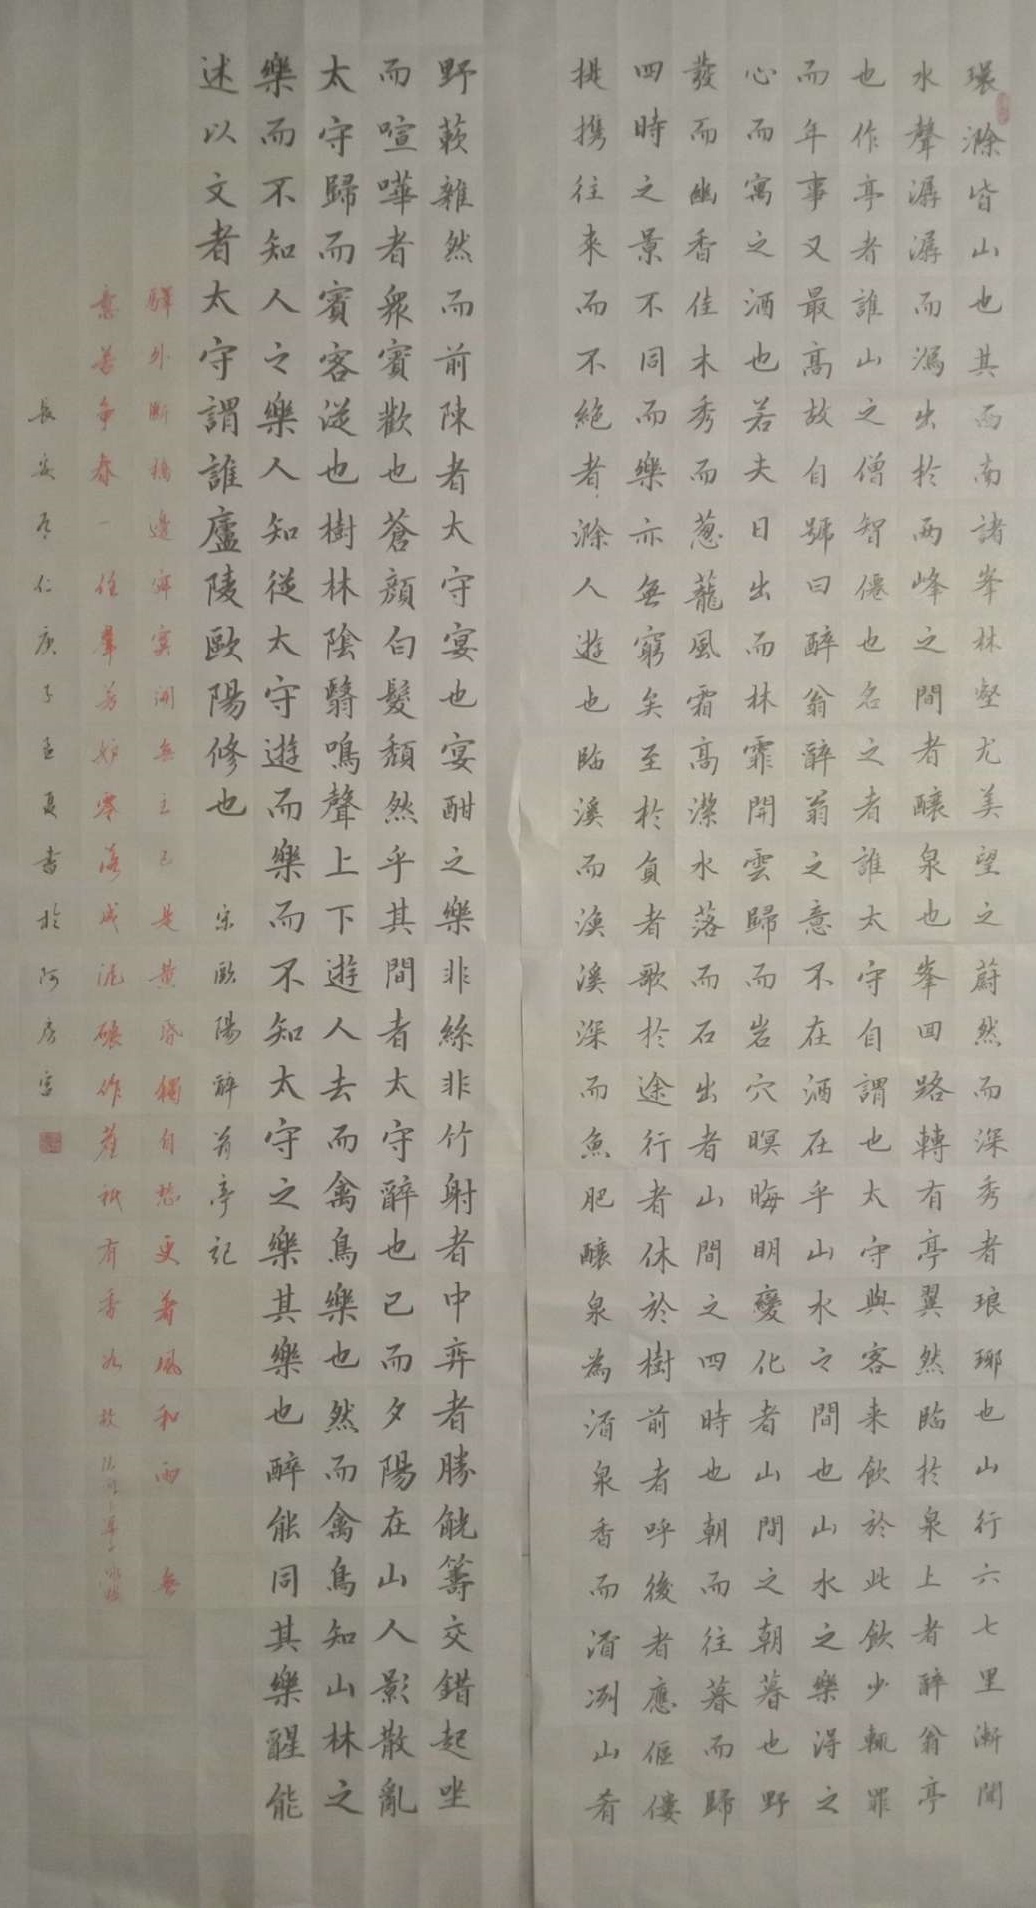 環滁皆山也其西南諸峯林壑尤美望之蔚然而深秀者琅琊也山行六七里漸聞
水聲潺潺而瀉出於兩峰之間者釀泉也峯回路轉有亭翼然臨於泉上者醉翁亭
也作亭者誰山之僧智僊也名之者誰太守自謂也太守與客来飲於此飲少輒罪
而年事又最高故自號曰醉翁醉翁之意不在酒在乎山水之間也山水之樂得之
心而寓之酒也若夫日出而林霏開雲歸而岩穴暝晦明變化者山間之朝暮也野
發而幽香佳木秀而葱蘢風霜高潔水落而石出者山間之四時也朝而往暮而歸
四時之景不同而樂亦無窮矣至於負者歌於途行者休於樹前者呼後者應傴僂
提携往来而不絕者滁人遊也臨溪而漁溪深而魚肥釀泉為酒泉香而酒洌山肴
野蔌雜然而前陳者太守宴也宴酣之樂非絲非竹射者中弈者勝觥籌交錯起坐
而喧嘩者衆賓歡也蒼顏白髮頹然乎其間者太守醉也已而夕陽在山人影散亂
太守歸而賓客從也樹林陰翳鳴聲上下遊人去而禽鳥樂也然而禽鳥知山林之
樂而不知人之樂人知從太守遊而樂而不知太守之樂其樂也醉能同其樂醒能
述以文者太守謂誰廬陵歐陽修也 宋歐陽醉翁亭記
驛外斷橋邊寂寞開無主已是黃昏獨自愁更着風和雨 無
意苦爭春一任羣芳妒零落成泥碾作塵衹有香如故
長安 仁庚子孟夏書於阿房宫